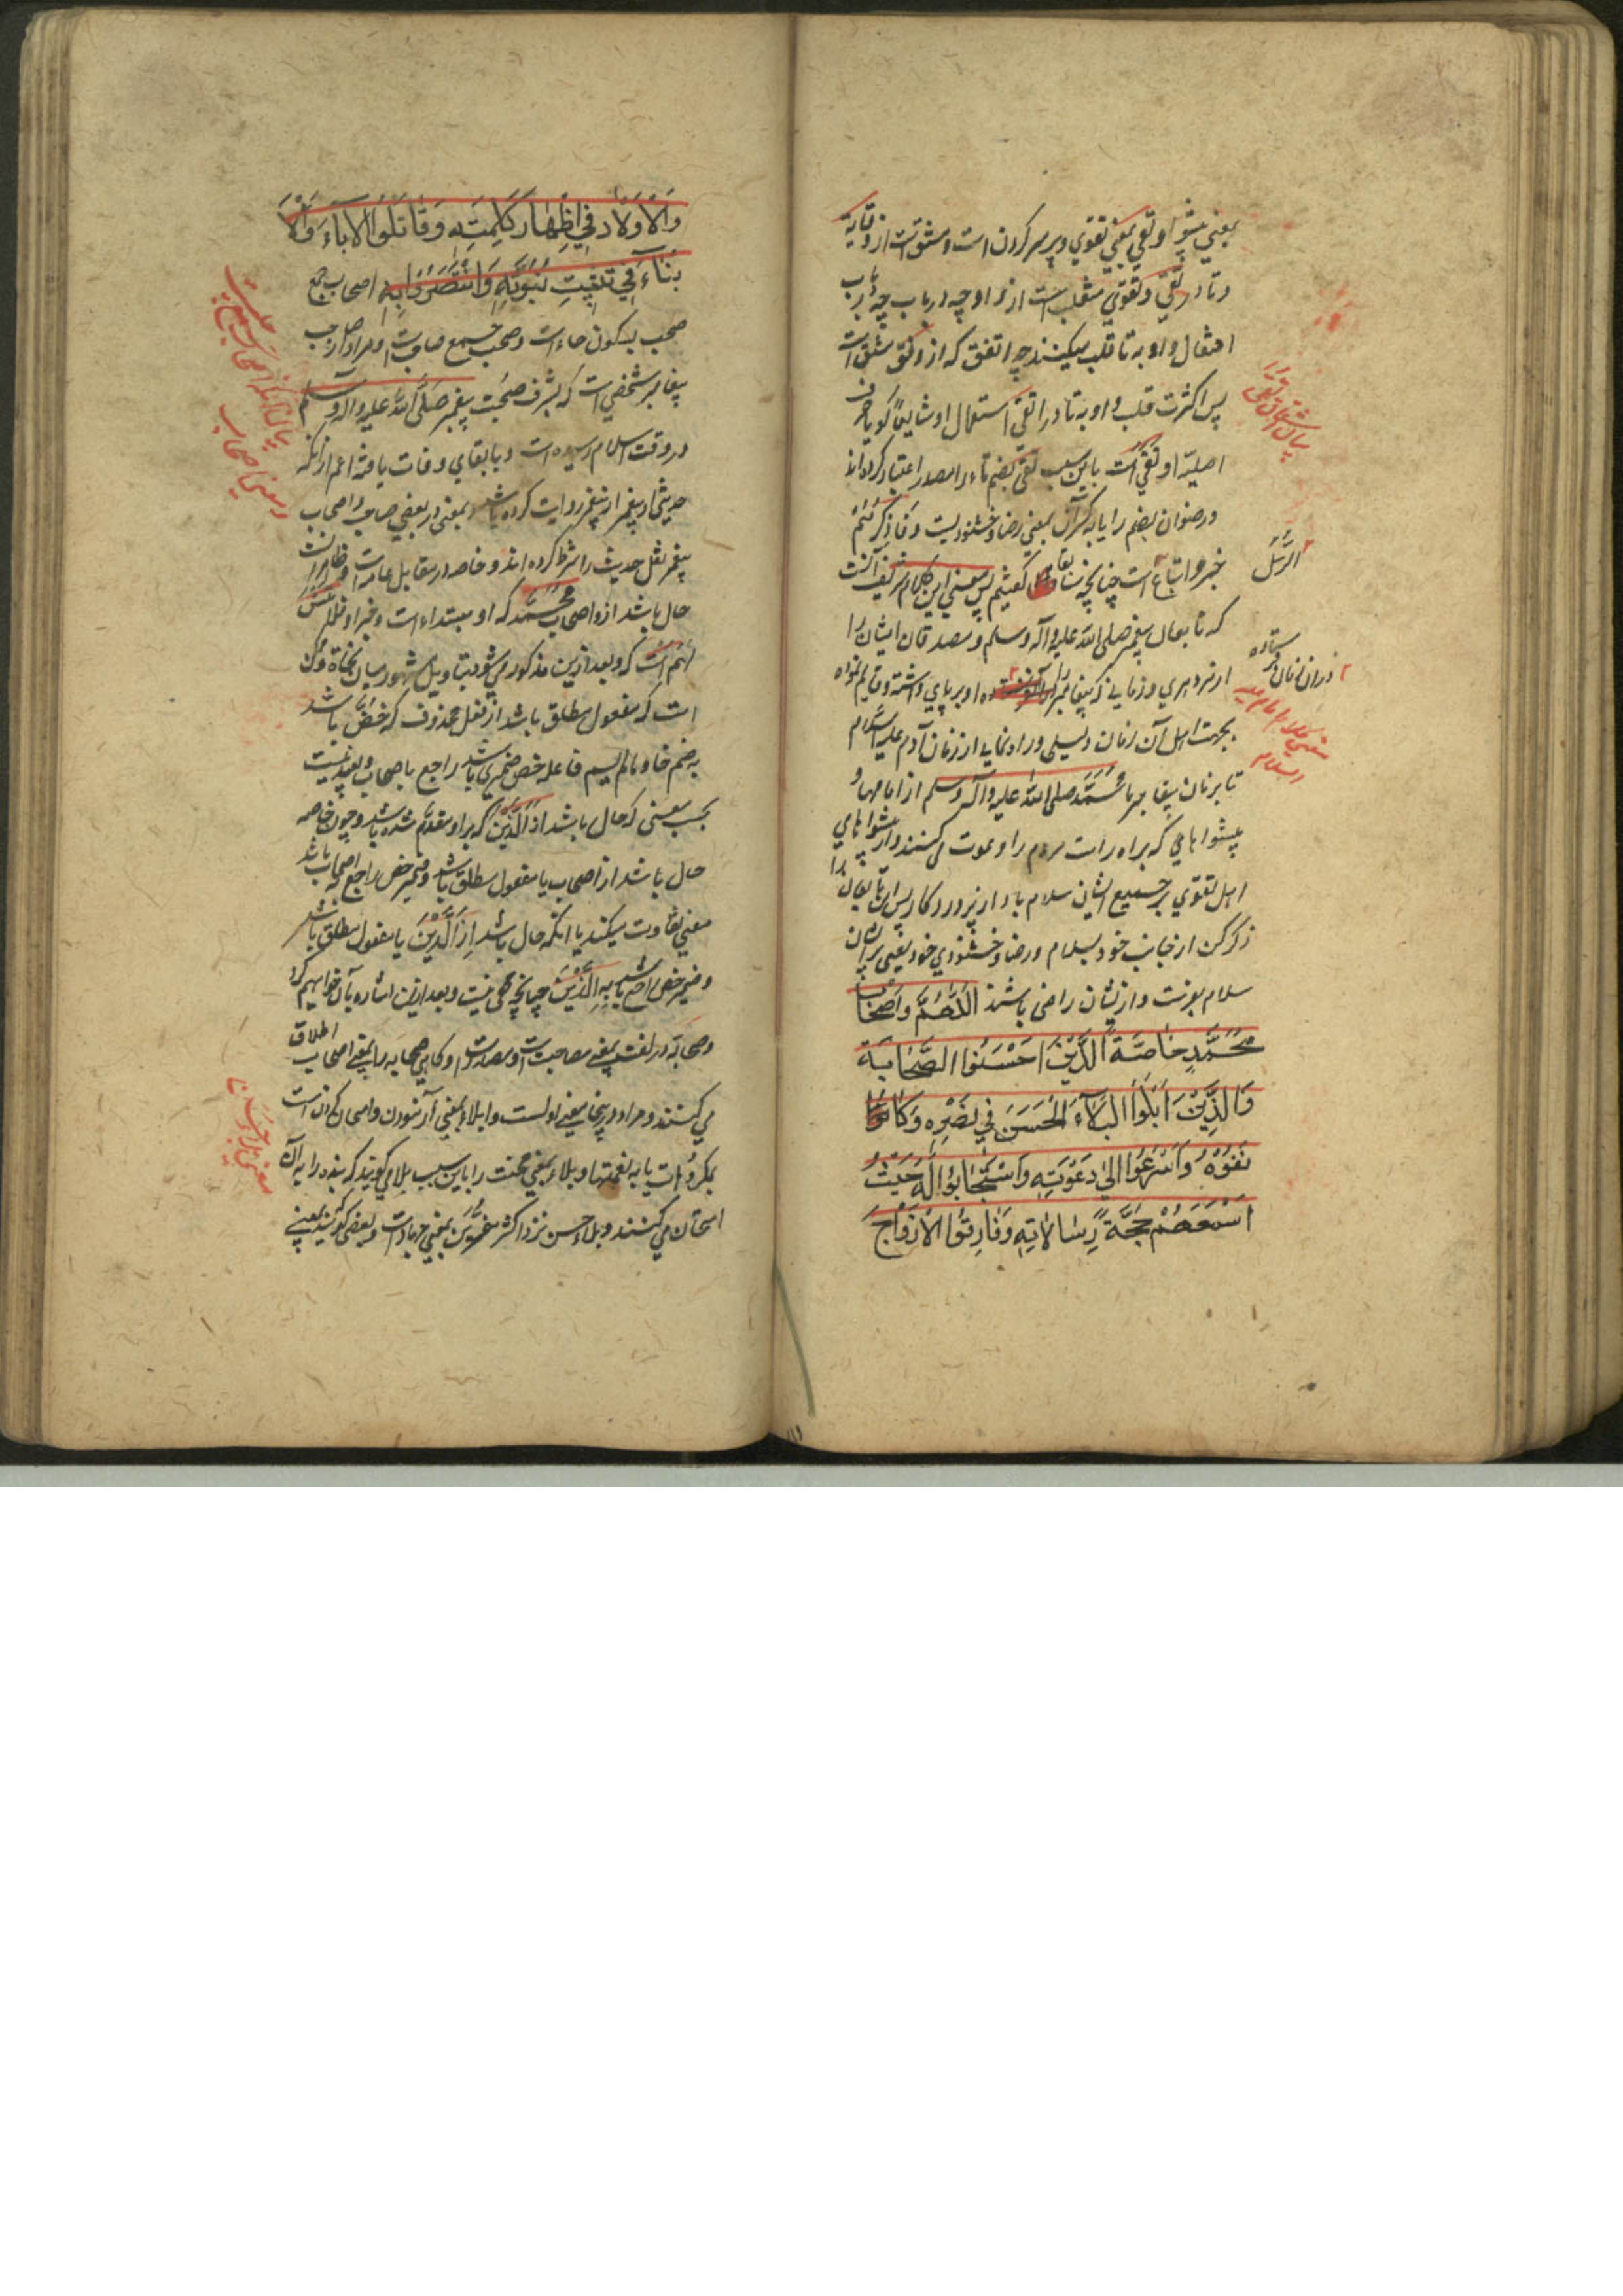 بمعني پيشوا و تقي بمعني تقوي و پرهيز كردن است و مشتق است از وقاية
و تا در تقي و تقوي منقلب است از واو چه در باب
افتعال واو به تا قلب ميكنند چه اتفق كه از وفق مشتق است
پس اكثرت قلب واو به تا در اتقي استعمال او شايعا گويا حرف
اصلية او تقي است باين سبب تقي بضم تاء را مصدر اعتبار كرده اند
و رضوان بضم را يا به كسر آن بمعني رضا و خشنوديست و فاذكرهم
خبر و اتباع است چنانچه سابقا گفتيم پس معني اين كلام شريف آنست
كه تابعان پيغمبر صلى الله عليه وآله وسلم و مصدقان ايشان را
از هر دهري و زماني كه پيغامبر او بر پاي داشته و قايم نموده
بجهت اهل آن زمان دليلي و راه نمايي از زمان آدم عليه السلام
تا بزمان پيغامبر ما محمد صلى الله عليه وآله وسلم از امامها و
پيشواهايي كه براه راست مردم را دعوت مي كنند و از پيشواهاي
اهل تقوي بر جميع ايشان سلام باد از پروردگار پس اين تابعان را
ذكر كن از جانب خود بسلام و رضا و خشنودي خود يعني بر ايشان
سلام بفرست و از ايشان راضي باش اللهم واصحاب
محمد خاصة الذين احسنوا الصحابة
والذين ابلوا البلاء الحسن في نصره وكانفوه
واسرعوا الى دعوته واستجابوا له حيث
اسمعهم حجة رسالاته وفارقوا الازواج
الرسل
در ان زمان فرستاده
بيان اشتقاق تقي
معني كلام امام عليه السلام
والاولاد في اظهار كلمته وقاتلوا الآباء والا
بناء في تثبيت نبوته وانتصروا به اصحاب جمع
صحب بسكون حاء است و صحب جمع صاحب است و مراد از صاحب
پيغامبر شخصي است كه بشرف صحبت پيغمبر صلى الله عليه وآله وسلم
در وقت اسلام رسيده است و با بقاي وفات يافته اعم از انكه
حديثي از پيغمبر روايت كرده باشد يعني در بعضي صاحب و اصحاب
پيغمبر نقل حديث را شرط كرده اند و خاصه در مقابل عامه است و ظاهر آنست
حال باشد از اصحاب محمد كه او مبتداء است و خبر او
است كه بعد ازين مذكور ميشود بتاويل مشهور ميان نحاة و ممكن
است كه مفعول مطلق باشد از فعل محذوف كه خص باشد
به ضم خاو مالم يسم فاعله خص ضميري باشد راجع باصحاب و بعيد نيست
بحسب معني كه حال باشد از الذين كه بر او مقدم شده باشد و چون خاصه
حال باشد از اصحاب يا مفعول مطلق باشد و ضمير خص راجع به اصحاب باشد
معني تفاوت ميكند يا انكه حال باشد از الذين يا مفعول مطلق باشد
و ضمير خص راجع باشد به الذين چنانچه مخفي نيست و بعد ازين اشاره بآن خواهيم كرد
و صحابه در لغت بمعني مصاحبت است و مصدر است و گاهي صحابه را بمعني اصحاب اطلاق
مي كنند و مراد در اينجا معني اولست و ابلاء بمعني آزمودن و امتحان كردن است
بمكروهات يا به نعمتها و بلاء بمعني محنت را باين سبب بلا مي گويند كه بنده را به آن
امتحان مي كنند و بلاء حسن نزد اكثر مفسرين بمعني جهاد است و بعضي گويند بمعني